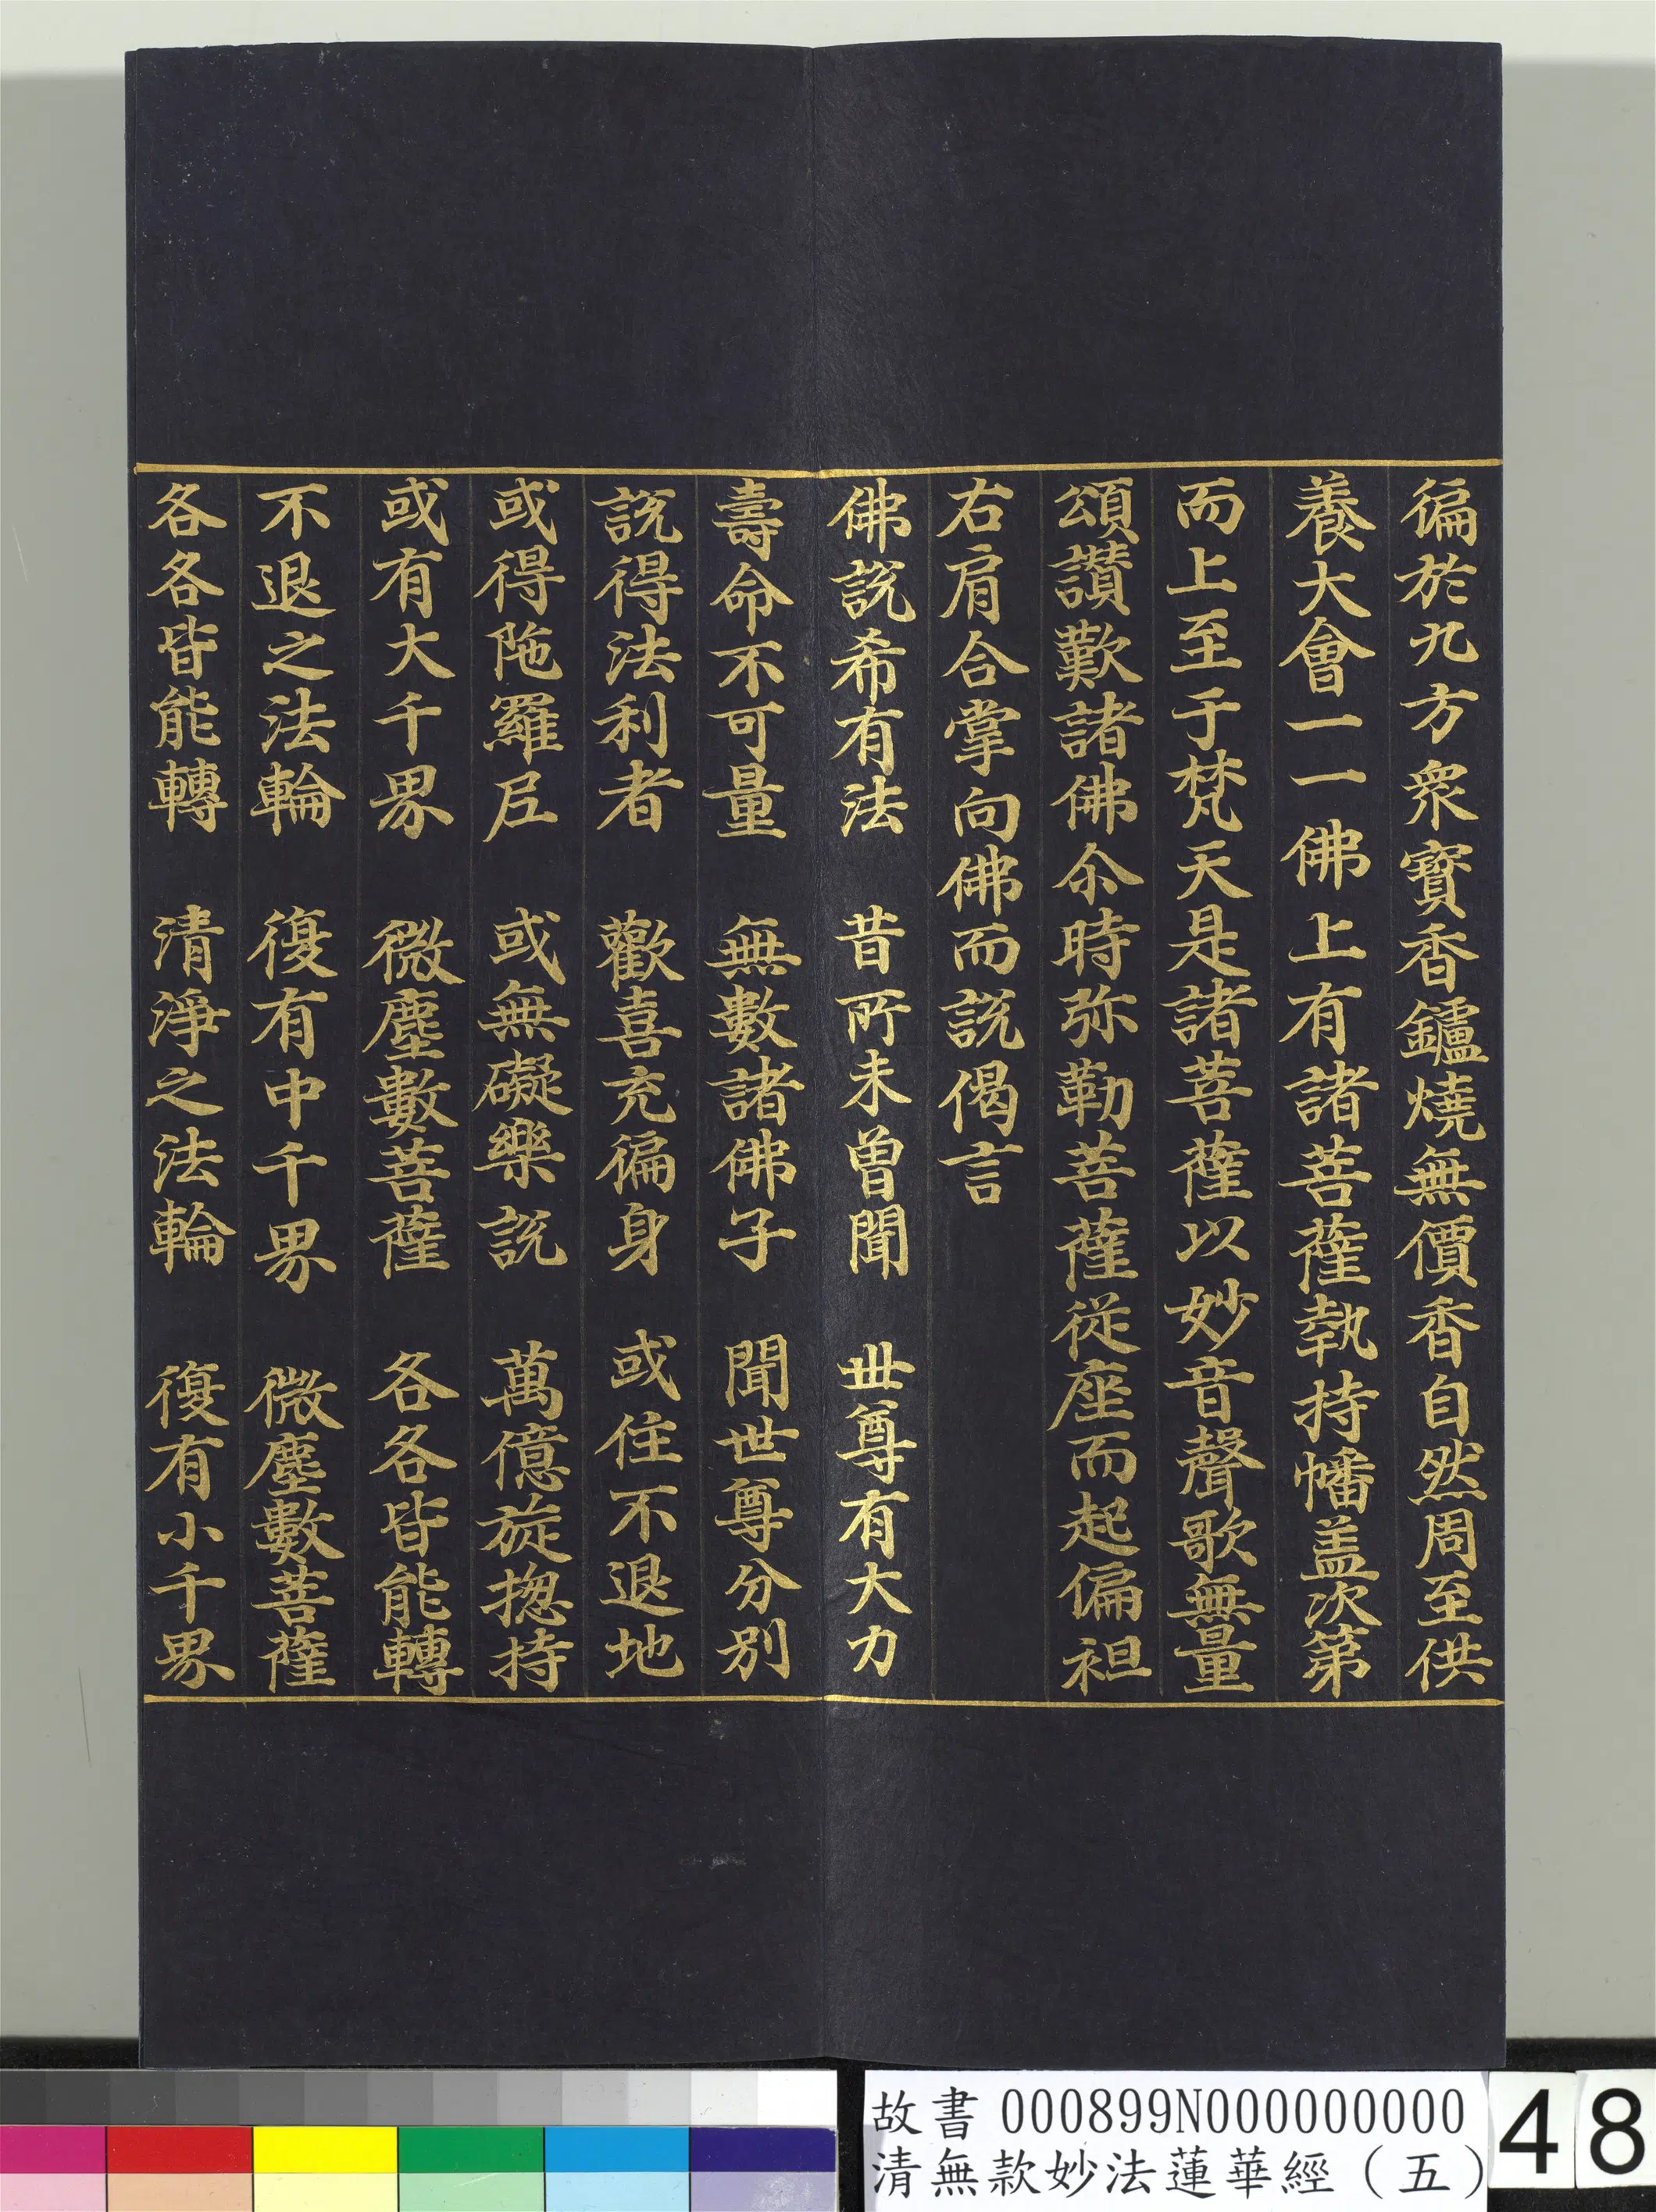 徧於九方衆寳香鑪燒無價香自然周至供
養大會一一佛上有諸菩薩執持幡盖次第
而上至于梵天是諸菩薩以妙音聲歌無量
頌讃歎諸佛尒時弥勒菩薩從座而起偏袒
右肩合掌向佛而說偈言
佛說希有法　昔所未曾聞　世尊有大力
壽命不可量　無數諸佛子　聞世尊分別
說得法利者　歡喜充徧身　或住不退地
或得陁羅尼　或無礙樂說　萬億旋揔持
或有大千界　微塵數菩薩　各各皆能轉
不退之法輪　復有中千界　微塵數菩薩
各各皆能轉　清淨之法輪　復有小千界
故書 000899N000000000
清無款妙法蓮華經（五）
48